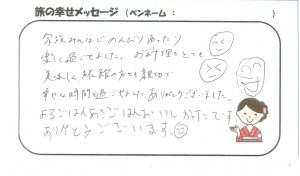 旅の幸せメッセージ（ペンネーム：　　　）
家族みんなでのんびりゆったり
楽しく過ごせました。お料理もとても
美味しく旅館の方も親切で
幸せな時間を過ごせました。ありがとうございました。
よるごはんあさごはんおいしかったです
ありがとうございます。